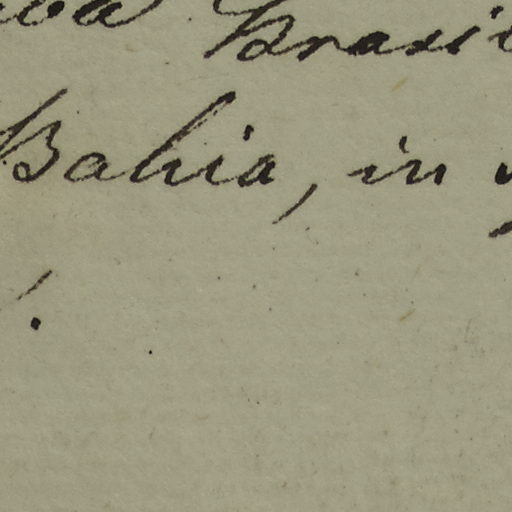 Brasil
Bahia, in